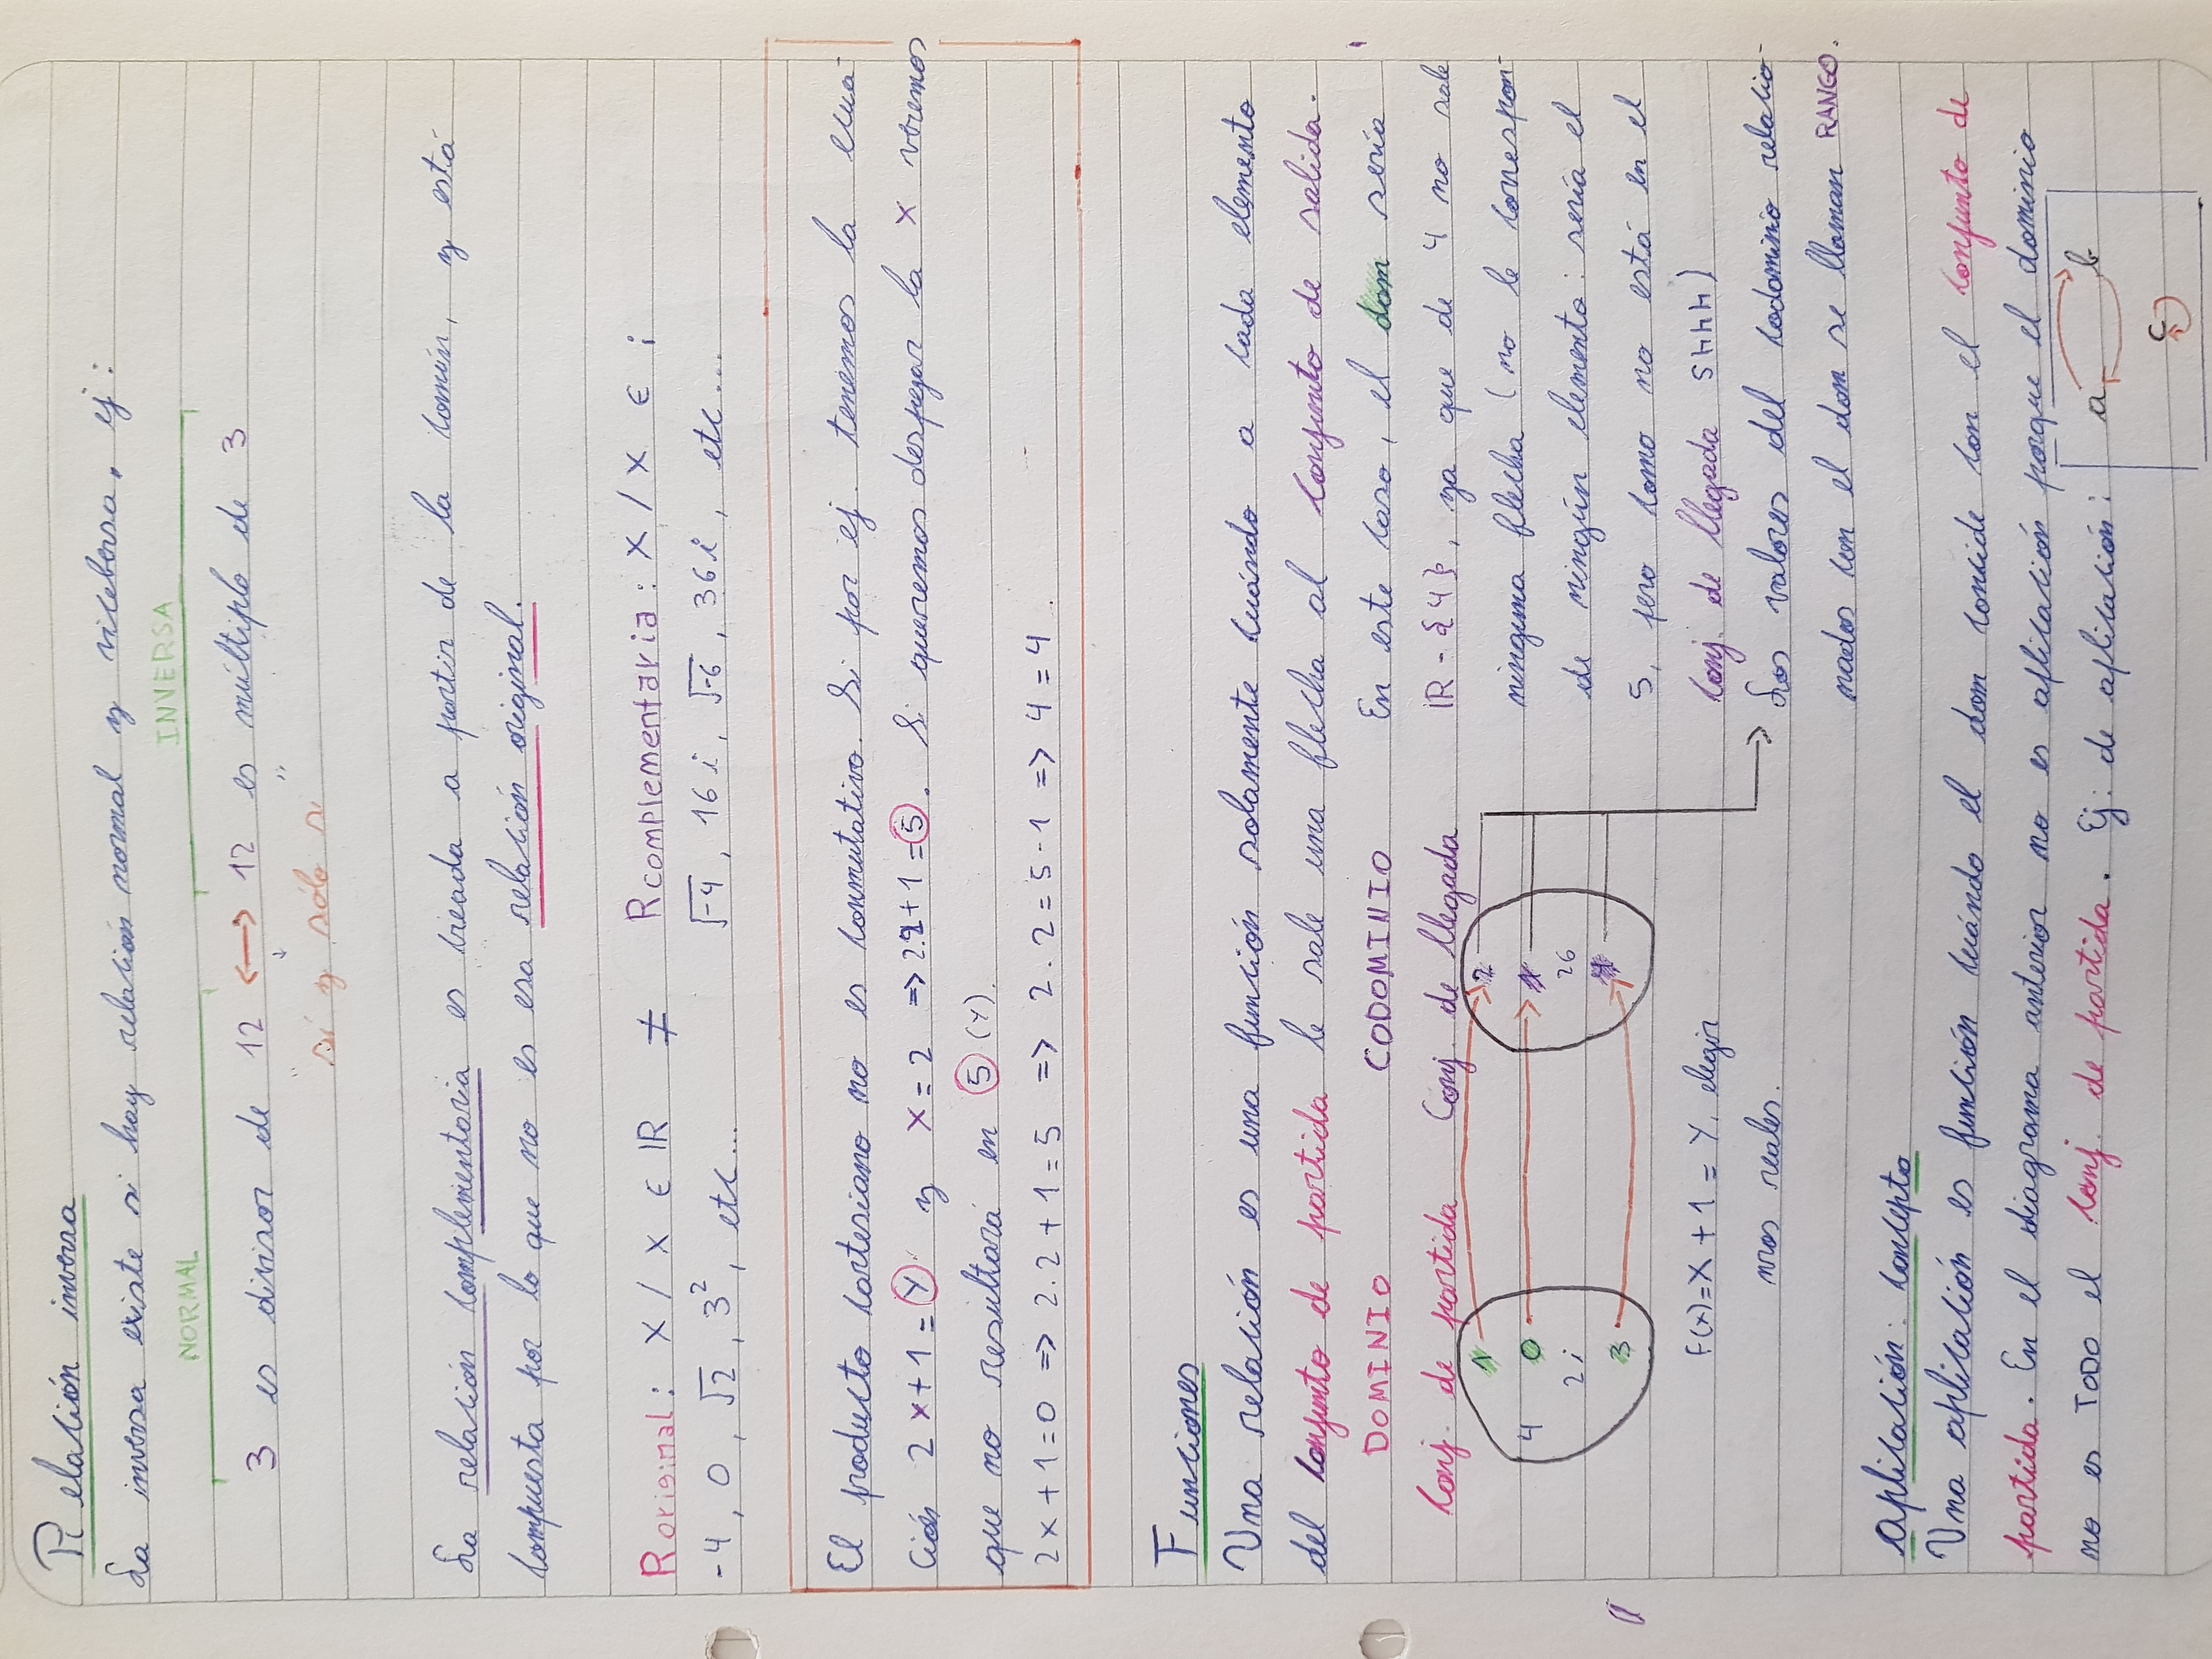 Relación inversa
La inversa existe si hay relación normal y vicebersa. ej:
NORMAL INVERSA
3 es divisor de 12 ↔ 12 es múltiplo de 3
"si y sólo si"
La relación complementaria es creada a partir de la común, y está
compuesta por lo que no es esa relación original.
Roriginal: X / X ∈ IR ≠ Rcomplementaria: X / X ∈ i
-4, 0, √2, 3², etc... √-4, 16i, √-6, 36i, etc...
El producto cartesiano no es conmutativo. Si por ej. tenemos la ecua-
ción 2x+1=Y y X=2 => 2.2+1=5. Si queremos despejar la X veremos
que no resultará en 5 (Y).
2x+1=0 => 2.2+1=5 => 2.2=5-1 => 4=4.
Funciones
Una relación es una función solamente cuándo a cada elemento
del conjunto de partida le sale una flecha al conjunto de salida.
DOMINIO CODOMINIO
Conj. de partida Conj. de llegada
1 2
4 0 1
2i 26
3 4
F(x)=X+1=Y, elegir
nros reales.
En este caso, el dom sería
IR-{4}, ya que de 4 no sale
ninguna flecha (no le correspon-
de ningún elemento: sería el
5, pero como no está en el
conj. de llegada SHHH)
→ Los valores del codominio relacio-
nados con el dom se llaman RANGO.
Aplicación: concepto
Una aplicación es función cuándo el dom concide con el conjunto de
partida. En el diagrama anterior no es aplicación porque el dominio
no es TODO el conj. de partida. Ej: de aplicación:
a b
c